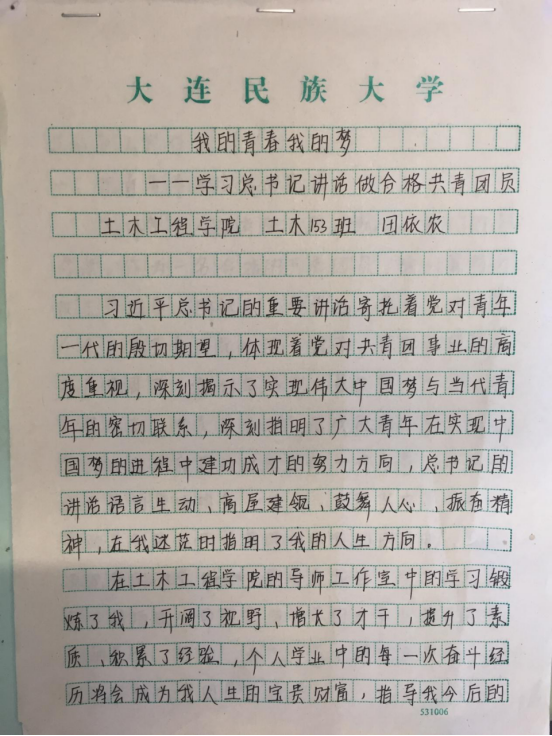 大连民族大学
我的青春我的梦
——学习总书记讲话做合格共青团员
土木工程学院 土木153班 田依农
习近平总书记的重要讲话寄托着党对青年
一代的殷切期望，体现着党对共青团事业的高
度重视，深刻揭示了实现伟大中国梦与当代青
年的密切联系，深刻指明了广大青年在实现中
国梦的进程中建功成才的努力方向，总书记的
讲话语言生动、高屋建瓴、鼓舞人心、振奋精
神，在我迷茫时指明了我的人生方向。
在土木工程学院的导师工作室中的学习锻
炼了我，开阔了视野，增长了才干，提升了素
质，积累了经验，个人学业中的每一次奋斗经
历将会成为我人生的宝贵财富，指导我今后的
531006